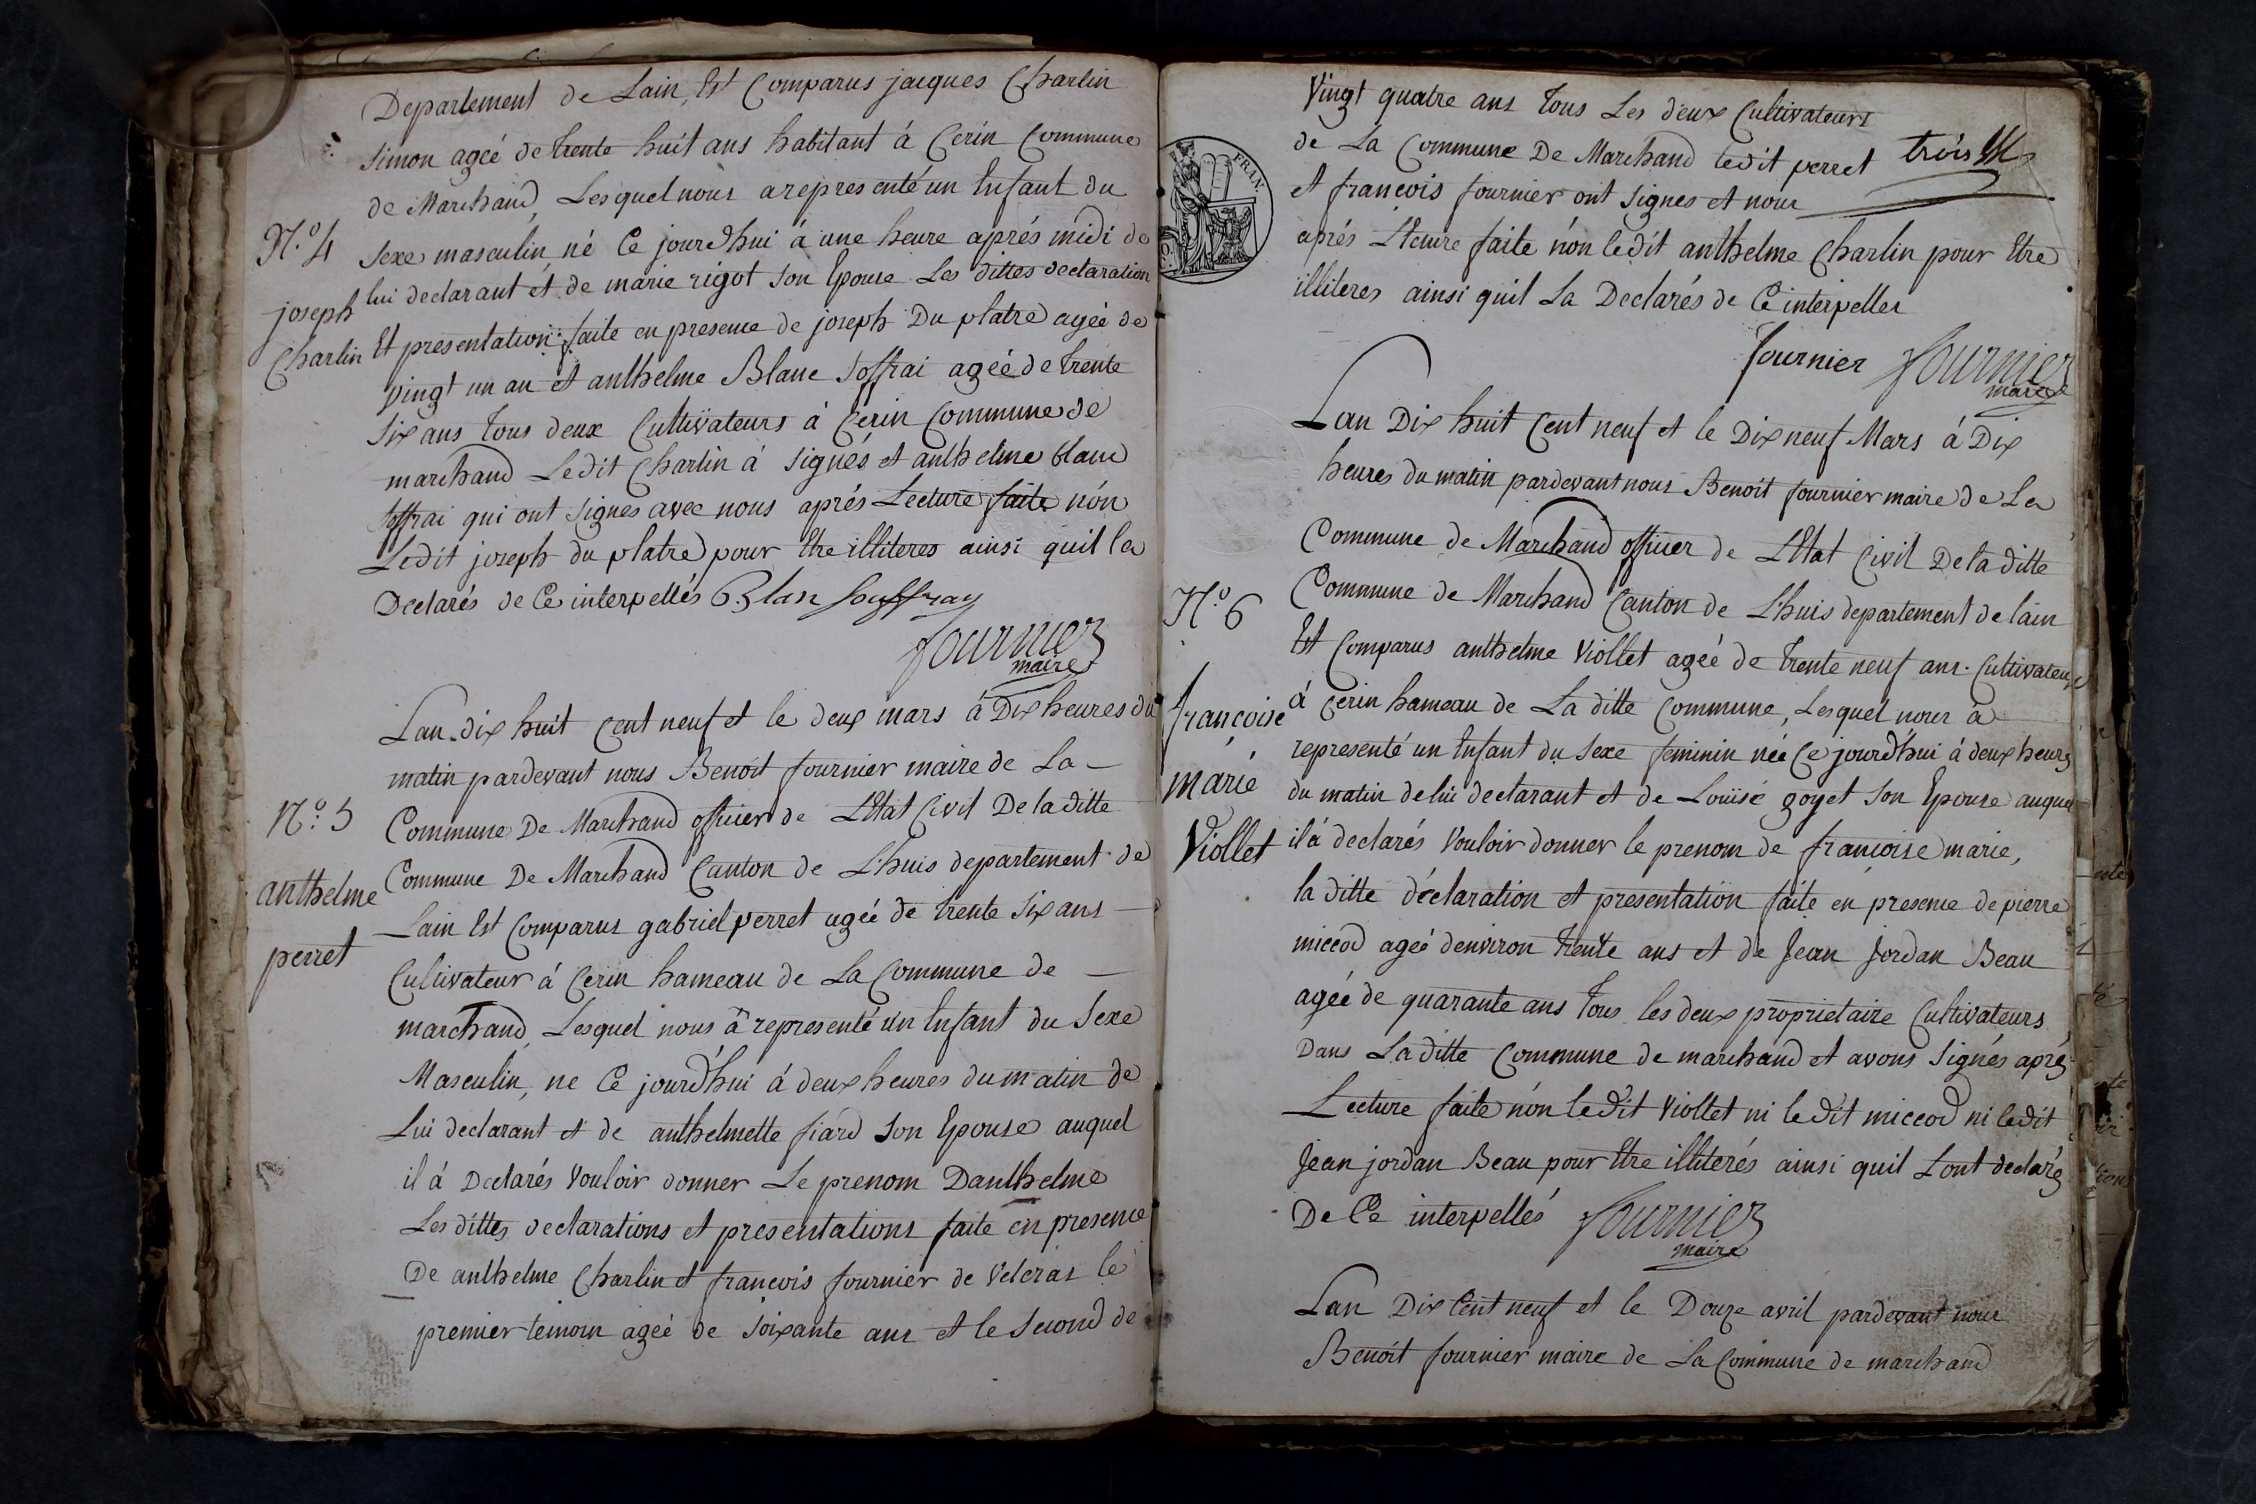 Departement de Lain, Est Comparus jacques Charlin
Simon ageé de trente huit ans habitant à Cerin Commune
de Marchand, Lesquel nous a representé un Enfant du
N.o 4
Sexe masculin né Ce jourdhui à une heure aprés midi de
lui declarant et de marie rigot son Epouse Les dittes declaration
joseph
Charlin
Et presentation faite en presence de joseph Du platre ageé de
Vingt un an et anthelme Blanc Joffrai ageé de trente
Six ans Tous deux Cultivateurs à Cerin Commune de
marchand Ledit Charlin à Signés et anthelme blanc
joffrai qui ont signes avec nous aprés Lecture faite nón
Ledit joseph du platre pour Etre illiteres ainsi quil la
Declarés de Ce interpellés Blan Souffray
fournier
maire
Lan dix huit Cent neuf et le deux mars à Dix heures du
matin pardevant nous Benoit fournier maire de La
N.o 5
Commune De Marchand officier de LEtat Civil De la ditte
Commune De Marchand Canton de Lhuis departement de
anthelme
perret
Lain Est Comparus gabriel perret ageé de trente Six ans
Cultivateur à Cerin hameau de La Commune de
marchand, Lesquel nous à representé un Enfant du Sexe
Masculin, ne Ce jourd'hui à deux heures du matin de
Lui declarant et de anthelmette fiard son Epouse auquel
il à Declarés Vouloir donner Le prenom Danthelme
Les dittes declarations et presentations faite en presence
De anthelme Charlin et francois fournier de Veleras le
premier temoin ageé de soixante ans et le Second de
Vingt quatre ans Tous Les deux Cultivateurs
de La Commune De Marchand ledit perret
trois
et francois fournier ont Signes et nous
FRAN.
aprés Lecture faite nón ledit anthelme Charlin pour Etre
illiteres ainsi quil La Declarés de Ce interpeller
fournier fournier
maire
Lan Dix huit Cent neuf et le Dix neuf Mars á Dix
heures du matin pardevant nous Benoit fournier maire de La
Commune de Marchand officier de LEtat Civil De la ditte
N.o 6
Commune de Marchand Canton de Lhuis departement de lain
Est Comparus anthelme Viollet ageé de trente neuf ans Cultivateur
françoise
marie
Viollet
à Cerin hameau de La ditte Commune, Lesquel nous à
representé un Enfant du Sexe feminin née Ce jourd'hui à deux heures
du matin de lui declarant et de Louise goyet son Epouse auquel
il à declarés Vouloir donner le prenom de francoise marie,
la ditte déclaration et presentation faite en presence de pierre
miccod ageé denviron trente ans et de Jean Jordan Beau
ageé de quarante ans Tous les deux proprietaire Cultivateurs
Dans La ditte Commune de marchand et avons Signés aprés
Lecture faite nón ledit Viollet ni ledit miccod ni ledit
Jean jordan Beau pour Etre illiterés ainsi quil Lont declarés
De Ce interpellés fournier
maire
Lan Dix Cent neuf et le Douze avril pardevant nous
Benoit fournier maire de La Commune de marchand